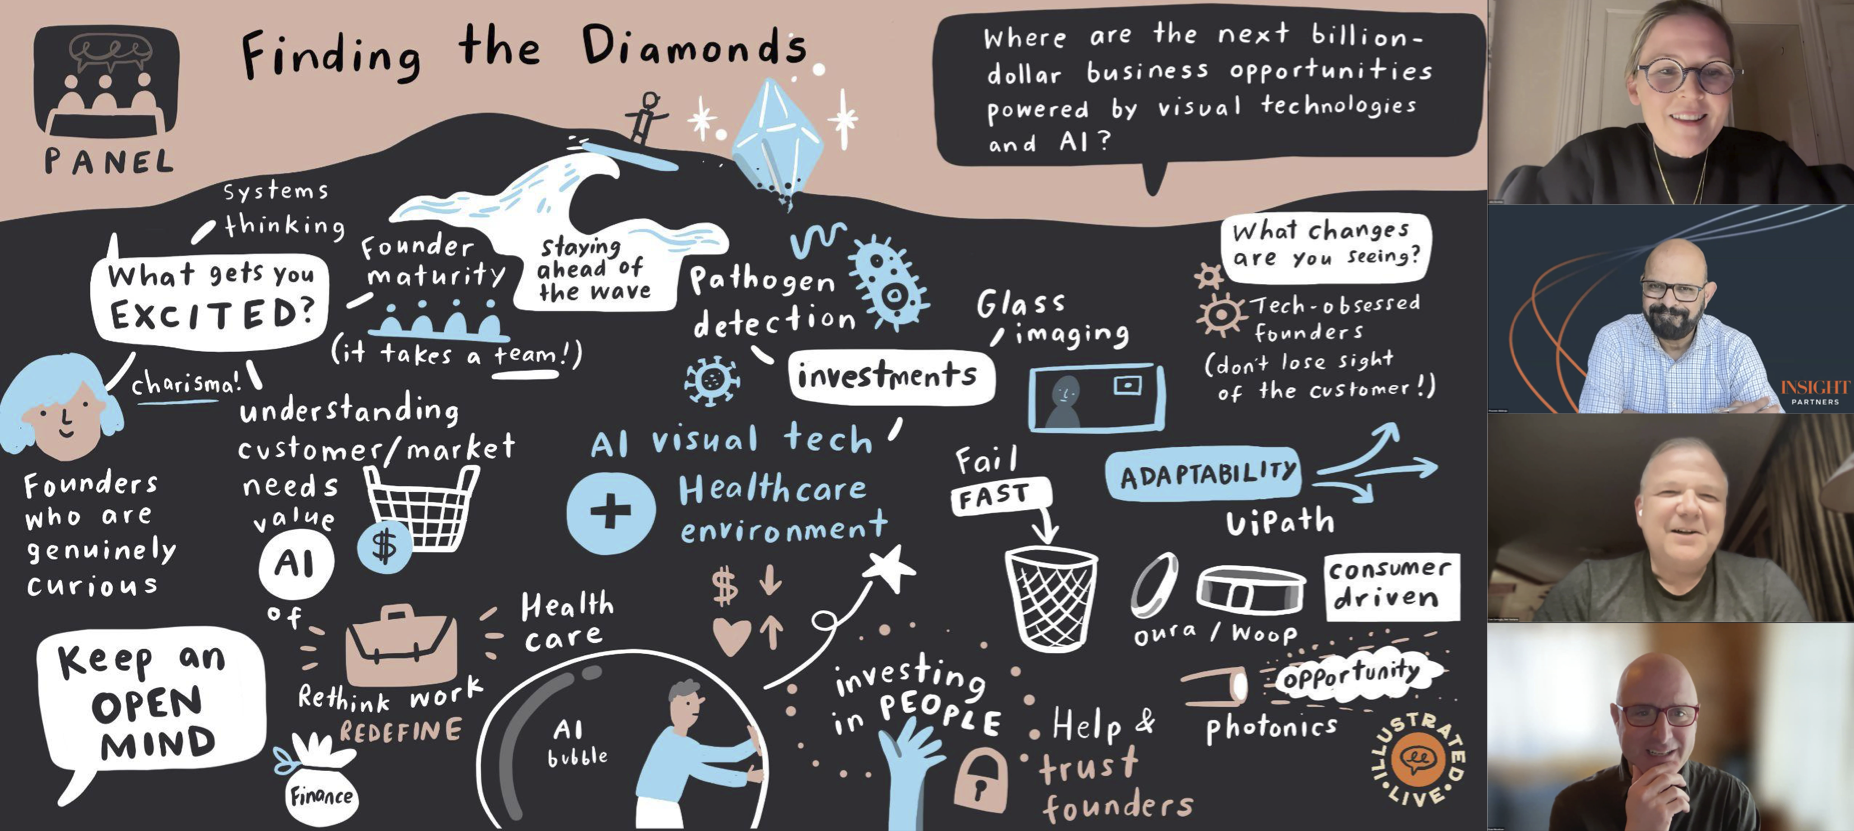 Finding the Diamonds
PANEL
Where are the next billion-
dollar business opportunities
powered by visual technologies
and AI?
Systems
thinking
What gets you
EXCITED?
Founder
maturity
(it takes a team!)
Staying
ahead of
the wave
charisma!
Founders
who are
genuinely
curious
understanding
customer/market
needs
value
AI
of
$
Keep an
OPEN
MIND
Rethink work
REDEFINE
Health
care
Finance
AI
bubble
Pathogen
detection
investments
Glass
imaging
AI visual tech
Healthcare
environment
$
investing
in PEOPLE
Help &
trust
founders
What changes
are you seeing?
Tech-obsessed
founders
(don't lose sight
of the customer!)
Fail
FAST
ADAPTABILITY
UiPath
oura / woop
consumer
driven
opportunity
photonics
ILLUSTRATED
LIVE
INSIGHT
PARTNERS